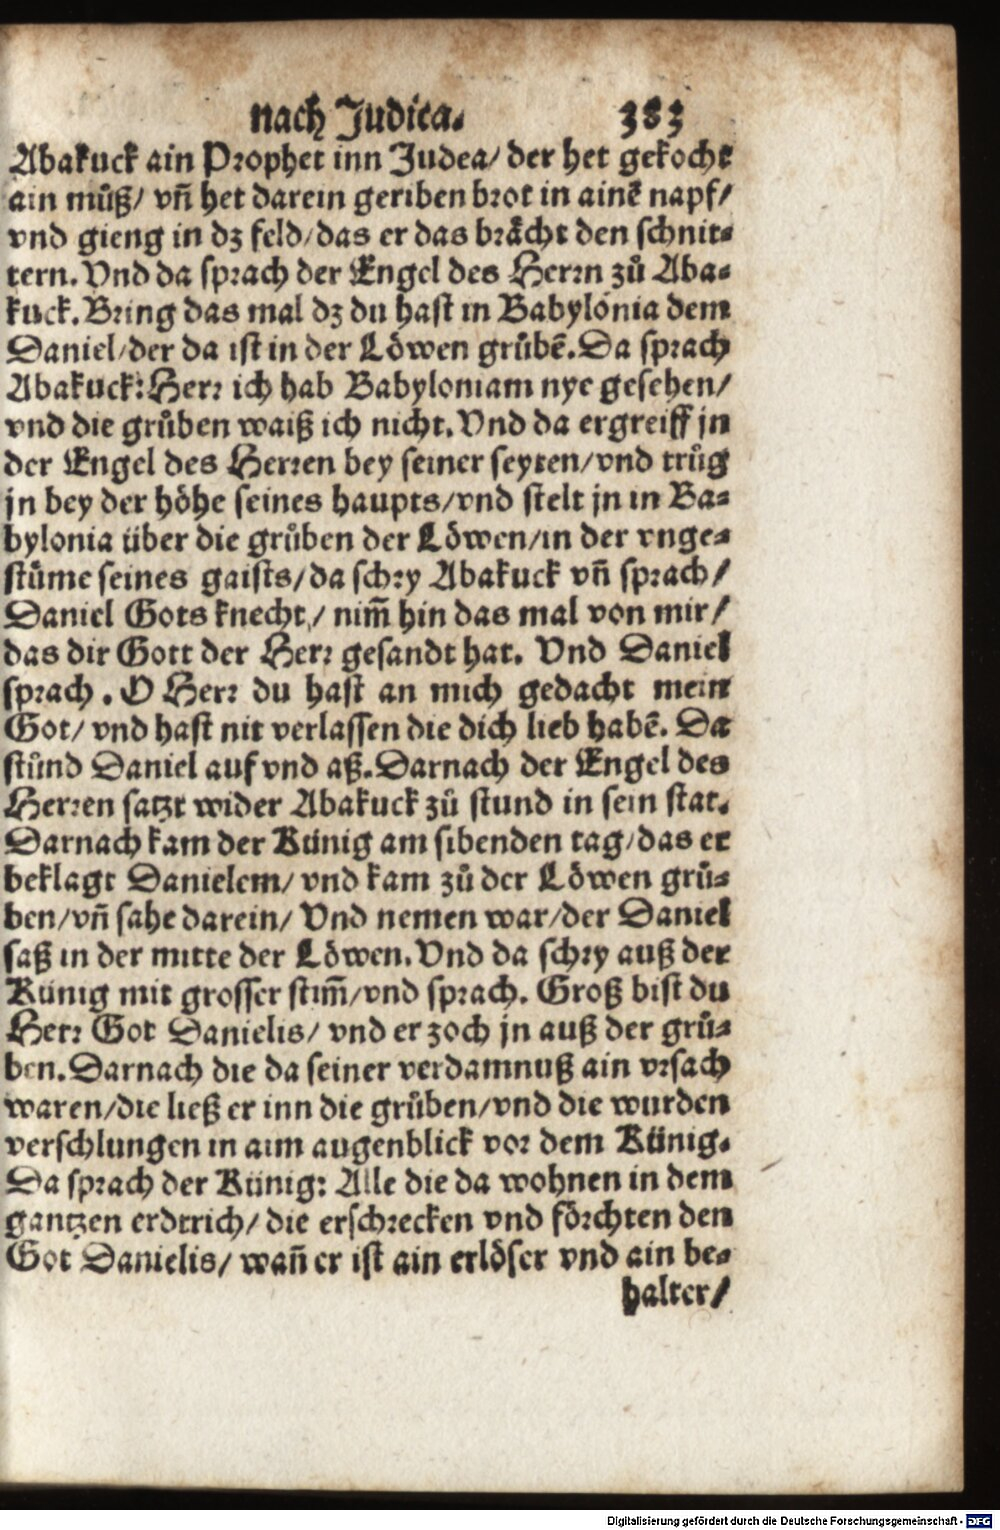 nach Judica. 383
Abakuck ain Prophet inn Judea/ der het gekocht
ain můß/ vñ het darein geriben brot in ainē napf/
vnd gieng in dz feld/das er das brächt den schnit⸗
tern. Vnd da sprach der Engel des Herrn zů Aba⸗
kuck. Bring das mal dz du hast in Babylonia dem
Daniel/der da ist in der Löwen grůbē. Da sprach
Abakuck: Herr ich hab Babyloniam nye gesehen/
vnd die grůben waiß ich nicht. Vnd da ergreiff jn
der Engel des Herren bey seiner seyten/vnd trůg
jn bey der höhe seines haupts/vnd stelt jn in Ba⸗
bylonia über die grůben der Löwen/in der vnge⸗
stüme seines gaists/da schry Abakuck vñ sprach/
Daniel Gots knecht/ nim̃ hin das mal von mir/
das dir Gott der Herr gesandt hat. Vnd Daniel
sprach. O Herr du hast an mich gedacht mein
Got/ vnd hast nit verlassen die dich lieb habē. Da
stůnd Daniel auf vnd aß. Darnach der Engel des
Herren satzt wider Abakuck zů stund in sein stat.
Darnach kam der Künig am sibenden tag/das er
beklagt Danielem/ vnd kam zů der Löwen grů⸗
ben/vñ sahe darein/ Vnd nemen war/der Daniel
saß in der mitte der Löwen. Vnd da schry auß der
Künig mit grosser stim̃/vnd sprach. Groß bist du
Herr Got Danielis/ vnd er zoch jn auß der grů⸗
ben. Darnach die da seiner verdamnuß ain vrsach
waren/die ließ er inn die grůben/vnd die wurden
verschlungen in aim augenblick vor dem Künig.
Da sprach der Künig: Alle die da wohnen in dem
gantzen erdtrich/ die erschrecken vnd förchten den
Got Danielis/ wañ er ist ain erlöser vnd ain be⸗
halter/
Digitalisierung gefördert durch die Deutsche Forschungsgemeinschaft - DFG